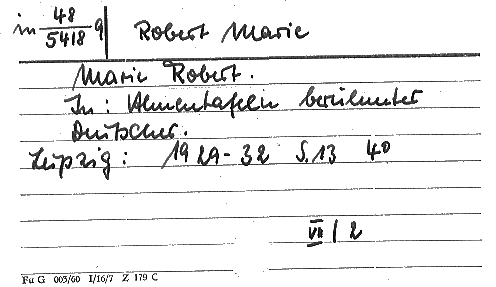 in 48/5418 q | Robert Marie
Marie Robert.
In: Ahnentafeln berühmter
Deutscher.
Leipzig: 1929-32 S. 13 4°
VII / 2
Fu G 003/60 I/16/7 Z 179 C